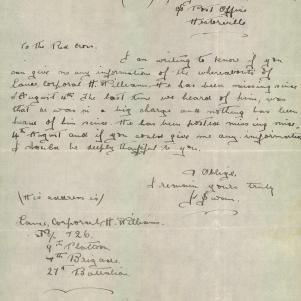 c/o Post Office
To the Red Cross.
I am writing to know if you
can give me any information of the whereabouts of
Lance Corporal H. Williams. He has been missing since
August 4th. The last time we heard of him, was
that he was in a big charge and nothing has been
heard of him since. He has been posted missing since,
4th August and if you could give me any information
I should be deeply thankful to you.
I remain yours truly
(His address is)
Lance Corporal H. Williams.
726.
9th Platoon
7th Brigade
27th Battalion